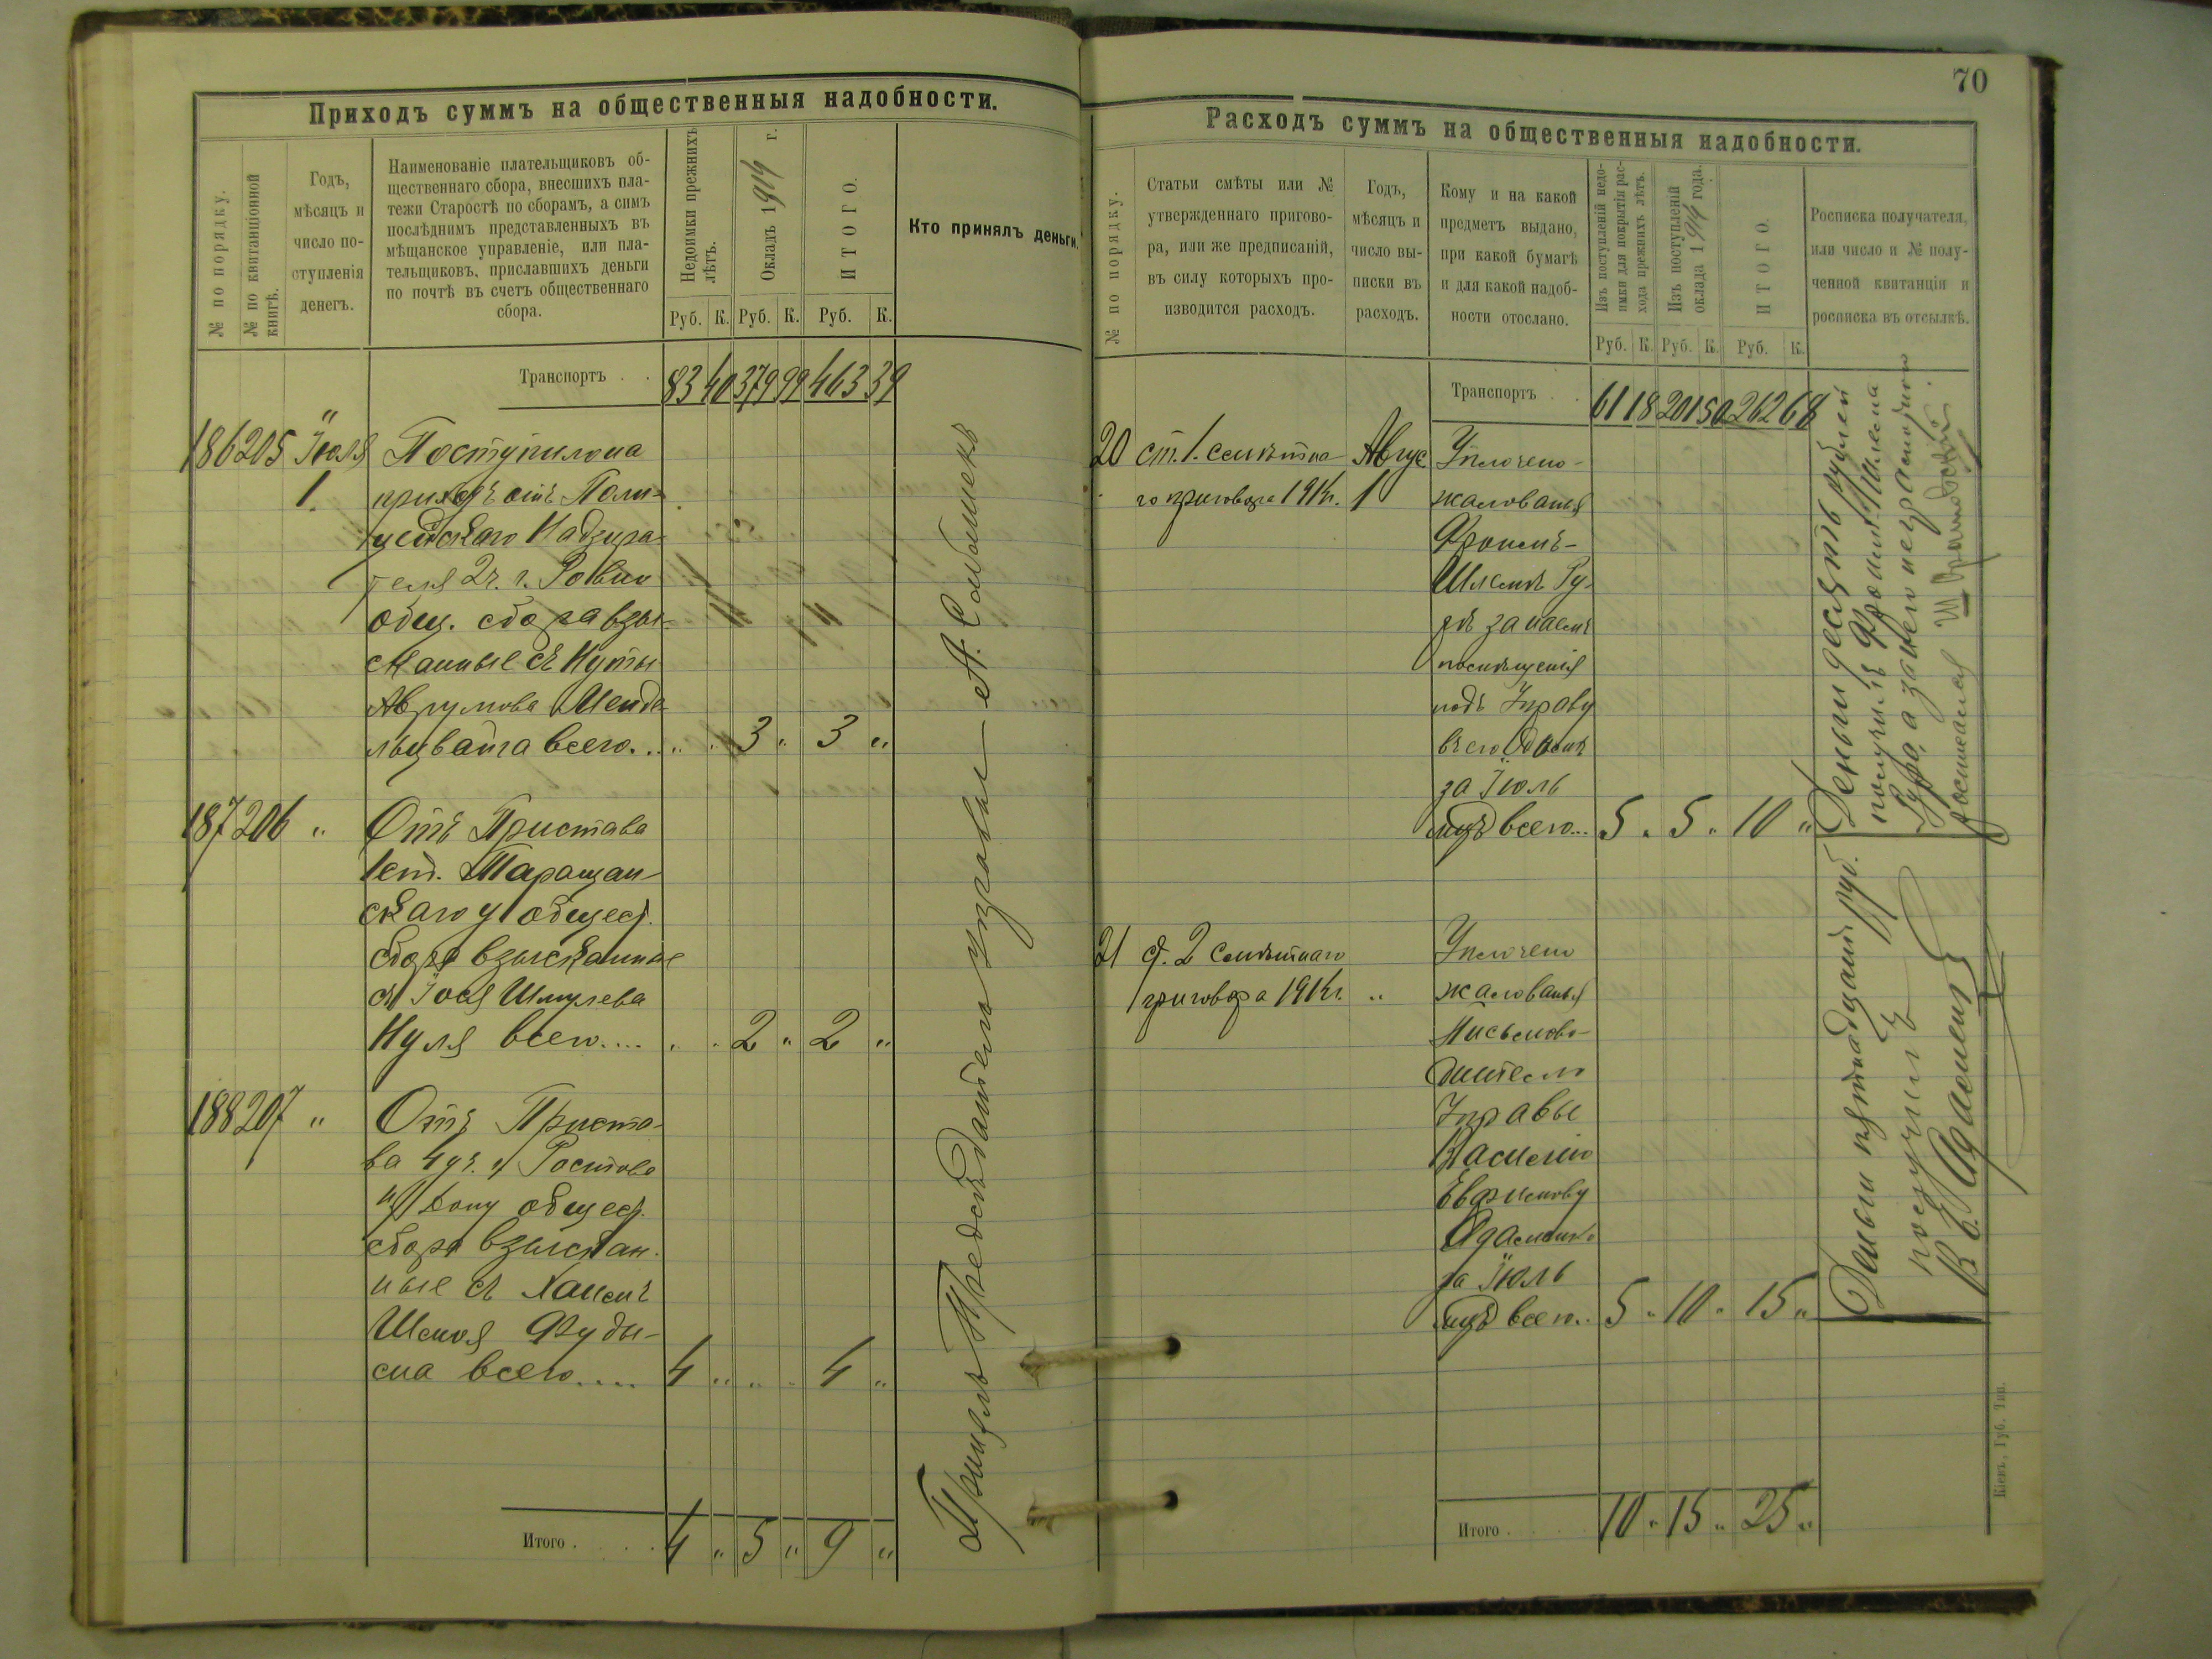 Приходъ суммъ на общественныя надобности.
№ по порядку.
№ по квитанціонной книгѣ.
Годъ,
мѣсяцъ и
число по-
ступленія
денегъ.
Наименованіе плательщиковъ об-
щественнаго сбора, внесшихъ пла-
тежи Старостѣ по сборамъ, а симъ
послѣднимъ представленныхъ въ
мѣщанское управленіе, или пла-
тельщиковъ, приславшихъ деньги
по почтѣ въ счетъ общественнаго
сбора.
Недоимки прежнихъ
лѣтъ.
Окладъ 1914 г.
ИТОГО.
Руб. К. Руб. К. Руб. К.
Кто принялъ деньги.
Транспортъ . . 83 40 379 99 463 39
186 205 Іюля Поступило на
1. приходъ отъ Поли-
цейскаго Надзира-
теля 2 ч. г. Ровно
общ. сбора взы-
сканные съ Нуты
Аврумова Менде-
льцвайга всего... „ „ 3 „ 3 „
187 206 „ Отъ Пристава
1 ст. Таращан-
скаго у общест.
сбора взысканные
съ Іося Шмулева
Нуля всего.... „ „ 2 „ 2 „
188 207 „ Отъ Приста-
ва 4 уч. г. Ростова
н/Дону общест.
сбора взыскан-
ные съ
всего.... 4 „ „ „ 4 „
Итого . . . . 4 „ 5 „ 9 „
Принялъ Предсѣдатель управы А.
70
Расходъ суммъ на общественныя надобности.
№ по порядку.
Статьи смѣты или №
утвержденнаго пригово-
ра, или же предписаній,
въ силу которыхъ про-
изводится расходъ.
Годъ,
мѣсяцъ и
число вы-
писки въ
расходъ.
Кому и на какой
предметъ выдано,
при какой бумагѣ
и для какой надоб-
ности отослано.
Изъ поступленій недо-
имки для покрытія рас-
хода прежнихъ лѣтъ.
Изъ поступленій
оклада 1914 года.
ИТОГО.
Руб. К. Руб. К. Руб. К.
Росписка получателя,
или число и № полу-
ченной квитанціи и
росписка въ отсылкѣ.
Транспортъ . . 61 18 201 50 262 68
20 ст. 1. смѣтна- Авгус Уплочено
го приговора 1914 г. 1 жалованья
Фроимъ-
Шлемѣ Ру-
дѣ за наемъ
помѣщенія
подъ Управу
въ его домѣ
за Іюль
мцъ всего... 5 „ 5 „ 10 „
Деньги десять рублей
получилъ Фроимъ-Шлема
Руда, а за него неграмотного
росписался
21 ст. 2 смѣтнаго Уплочено
приговора 1914 г. „ жалованья
Письмово-
дителю
Управы
Василію
Ефимову
Адаменко
за Іюль
мцъ всего.. 5 „ 10 „ 15 „
Деньги пятнадцать руб.
получилъ
В. Е. Адаменко
Итого . . . 10 „ 15 „ 25 „
Кіевъ, Губ. Тип.